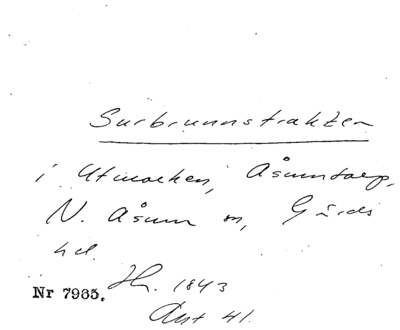 Surbrunnstrakten
i Utmarken, Åsumtorp,
N. Åsum sn, Gärds
hd.
Nr 7965. Hr. 1843
Avst 41.